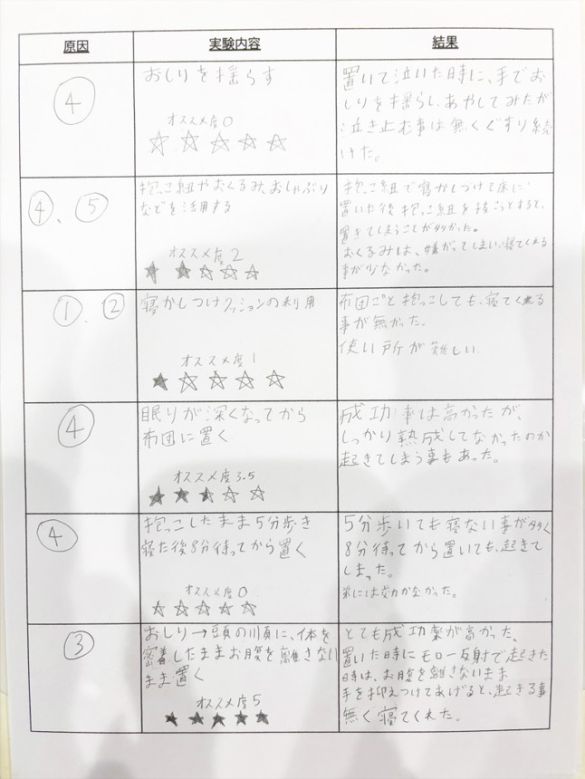 原因
実験内容
結果
④
おしりを揺らす
オススメ度0
☆☆☆☆☆
置いて泣いた時に、手でお
しりを揺らし、あやしてみたが
泣き止む事は無くぐずり続
けた。
④、⑤
抱っこ紐やおくるみ、おしゃぶり
などを活用する
オススメ度2
★★☆☆☆
抱っこ紐で寝かしつけて床に
置いた後抱っこ紐を
起きてしまうことが多かった。
おくるみは、嫌がってしまい寝てくれる
事が少なかった。
①、②
寝かしつけクッションの利用
オススメ度1
★☆☆☆☆
布団ごと抱っこしても、寝てくれる
事が無かった。
使い所が難しい
④
眠りが深くなってから
布団に置く
オススメ度3.5
★★★☆☆
成功率は高かったが、
しっかり熟成してなかったのか
起きてしまう事もあった。
④
抱っこしたまま5分歩き
寝た後8分待ってから置く
オススメ度0
☆☆☆☆☆
5分歩いても寝ない事が多く
8分待ってから置いても、起きて
しまった。
弟には効力がなかった。
③
おしり→頭の順に、体を
密着したままお腹を離さない
まま置く
オススメ度5
★★★★★
とても成功率が高かった、
置いた時にモロー反射で起きた
時は、お腹を離さないまま
手を抑えつけてあげると、起きる事
無く寝てくれた。